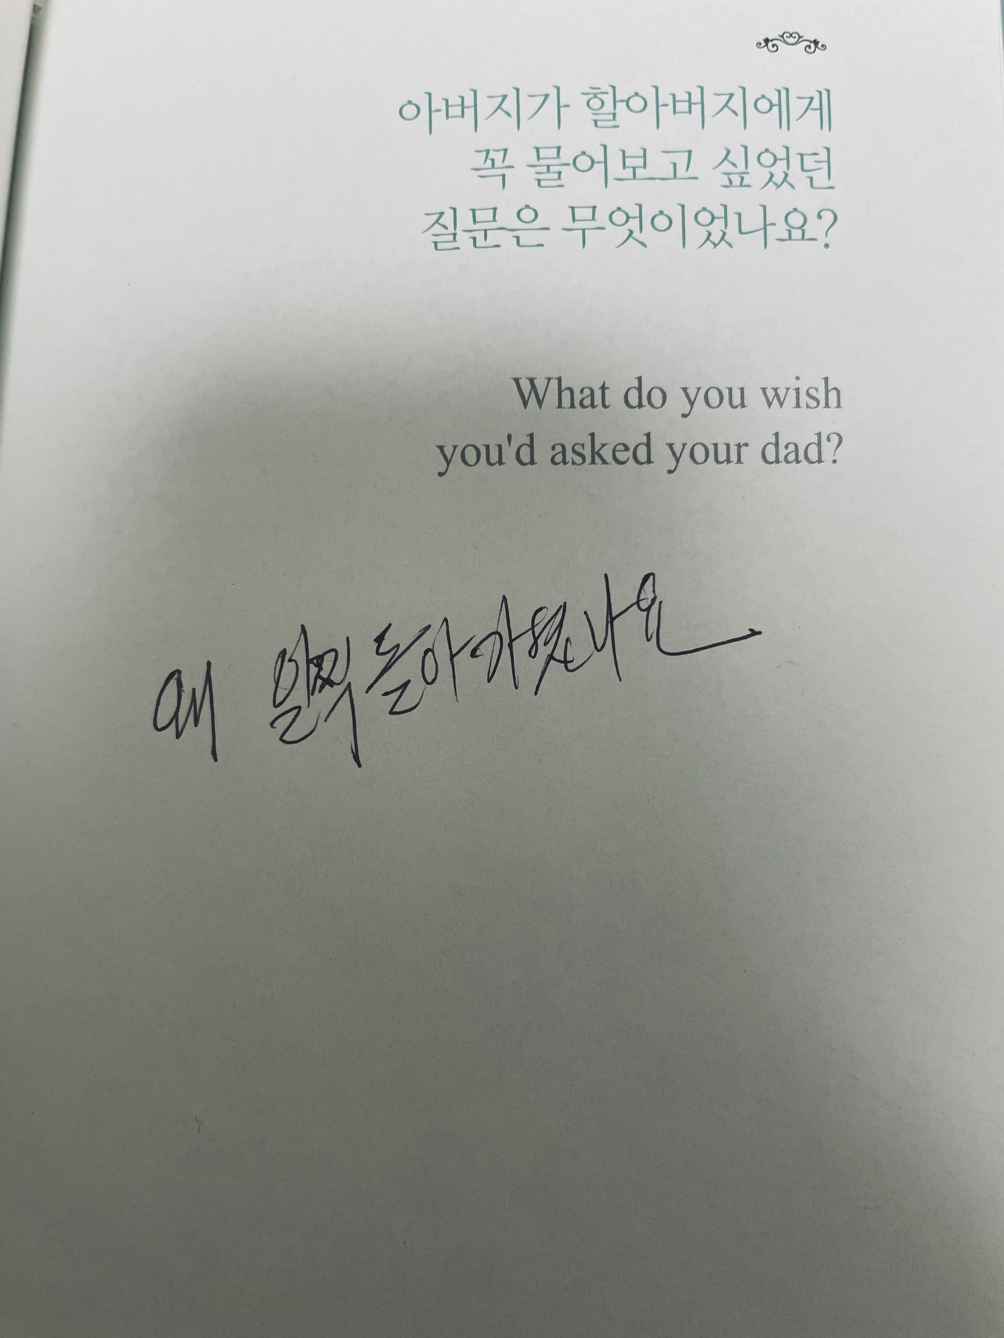 아버지가 할아버지에게
꼭 물어보고 싶었던
질문은 무엇이었나요?
What do you wish
you'd asked your dad?
왜 일찍 돌아가셨나요